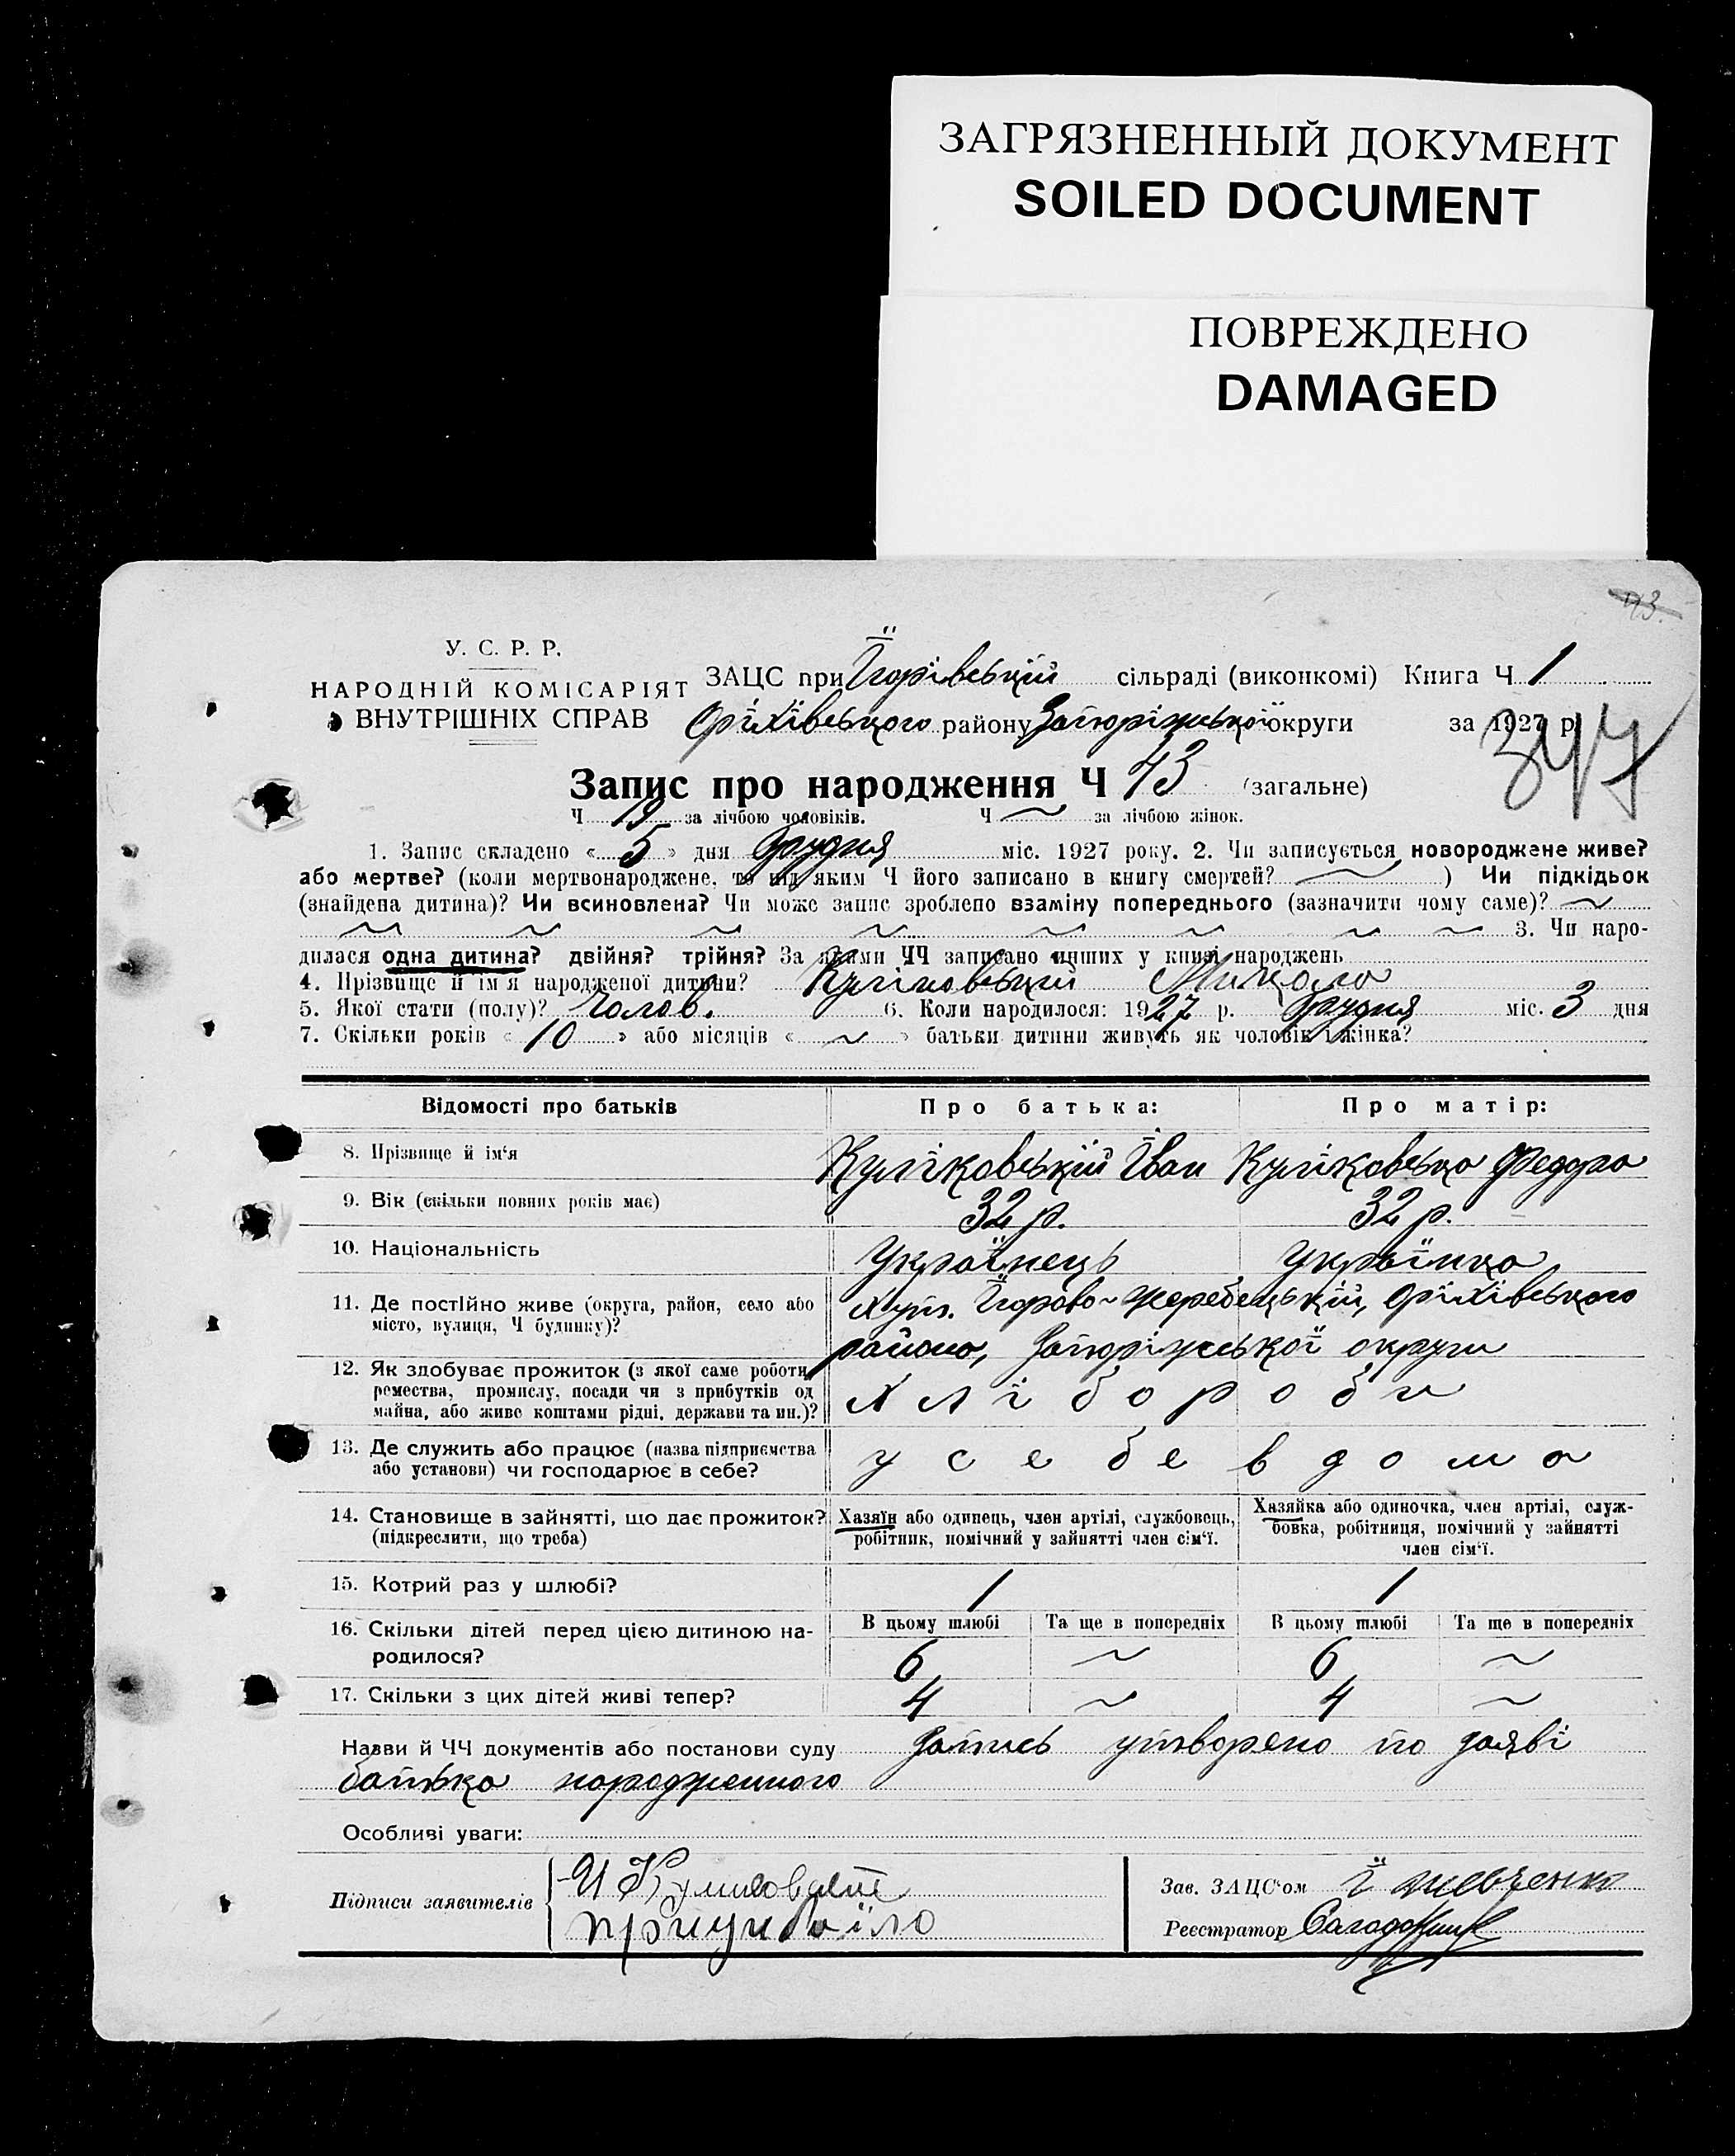 ЗАГРЯЗНЕННЫЙ ДОКУМЕНТ
SOILED DOCUMENT
ПОВРЕЖДЕНО
DAMAGED
43.
У. С. Р. Р.
НАРОДНІЙ КОМІСАРІЯТ
ВНУТРІШНІХ СПРАВ
ЗАЦС при Їгорівській сільраді (виконкомі) Книга Ч 1
Оріхівського району Запоріжської округи за 1927 р.
347
Запис про народження Ч 43 (загальне)
Ч 19 за лічбою чоловіків. Ч ~ за лічбою жінок.
1. Запис складено « 5 » дня Грудня міс. 1927 року. 2. Чи записується новороджене живе?
або мертве? (коли мертвонароджене, то під яким Ч його записано в книгу смертей? ~ ) Чи підкідьок
(знайдена дитина)? Чи всиновлена? Чи може запис зроблено взаміну попереднього (зазначити чому саме)? ~
~ ~ ~ ~ ~ ~ ~ ~ 3. Чи наро-
дилася одна дитина? двійня? трійня? За якими ЧЧ записано инших у книзі народжень
4. Прізвище й ім'я народженої дитини? Куліковський Микола
5. Якої стати (полу)? Чолов. 6. Коли народилося: 1927 р. Грудня міс. 3 дня
7. Скільки років « 10 » або місяців « ~ » батьки дитини живуть як чоловік і жінка?
Відомості про батьків Про батька: Про матір:
8. Прізвище й ім'я Куліковській Їван Куліковська Федора
9. Вік (скільки повних років має) 32 р. 32 р.
10. Національність Українець Українка
11. Де постійно живе (округа, район, село або місто, вулиця, Ч будинку)? Хут. Їгорово-Жеребецькій, Оріхівського
району, Запоріжської округи
12. Як здобуває прожиток (з якої саме роботи,
ремества, промислу, посади чи з прибутків од
майна, або живе коштами рідні, держави та ин.)? Хлібороби
13. Де служить або працює (назва підприємства
або установи) чи господарює в себе? у себе в дома
14. Становище в зайнятті, що дає прожиток?
(підкреслити, що треба)
Хазяїн або одинець, член артілі, службовець,
робітник, помічний у зайнятті член сім'ї.
Хазяйка або одиночка, член артілі, служ-
бовка, робітниця, помічний у зайнятті
член сім'ї.
15. Котрий раз у шлюбі? 1 1
В цьому шлюбі Та ще в попередніх В цьому шлюбі Та ще в попередніх
16. Скільки дітей перед цією дитиною на-
родилося? 6 ~ 6 ~
17. Скільки з цих дітей живі тепер? 4 ~ 4 ~
Назви й ЧЧ документів або постанови суду Запись утворено по заяві
батька народженного
Особливі уваги:
Підписи заявителів И
Зав. ЗАЦС'ом Ї Шевченко
Реєстратор